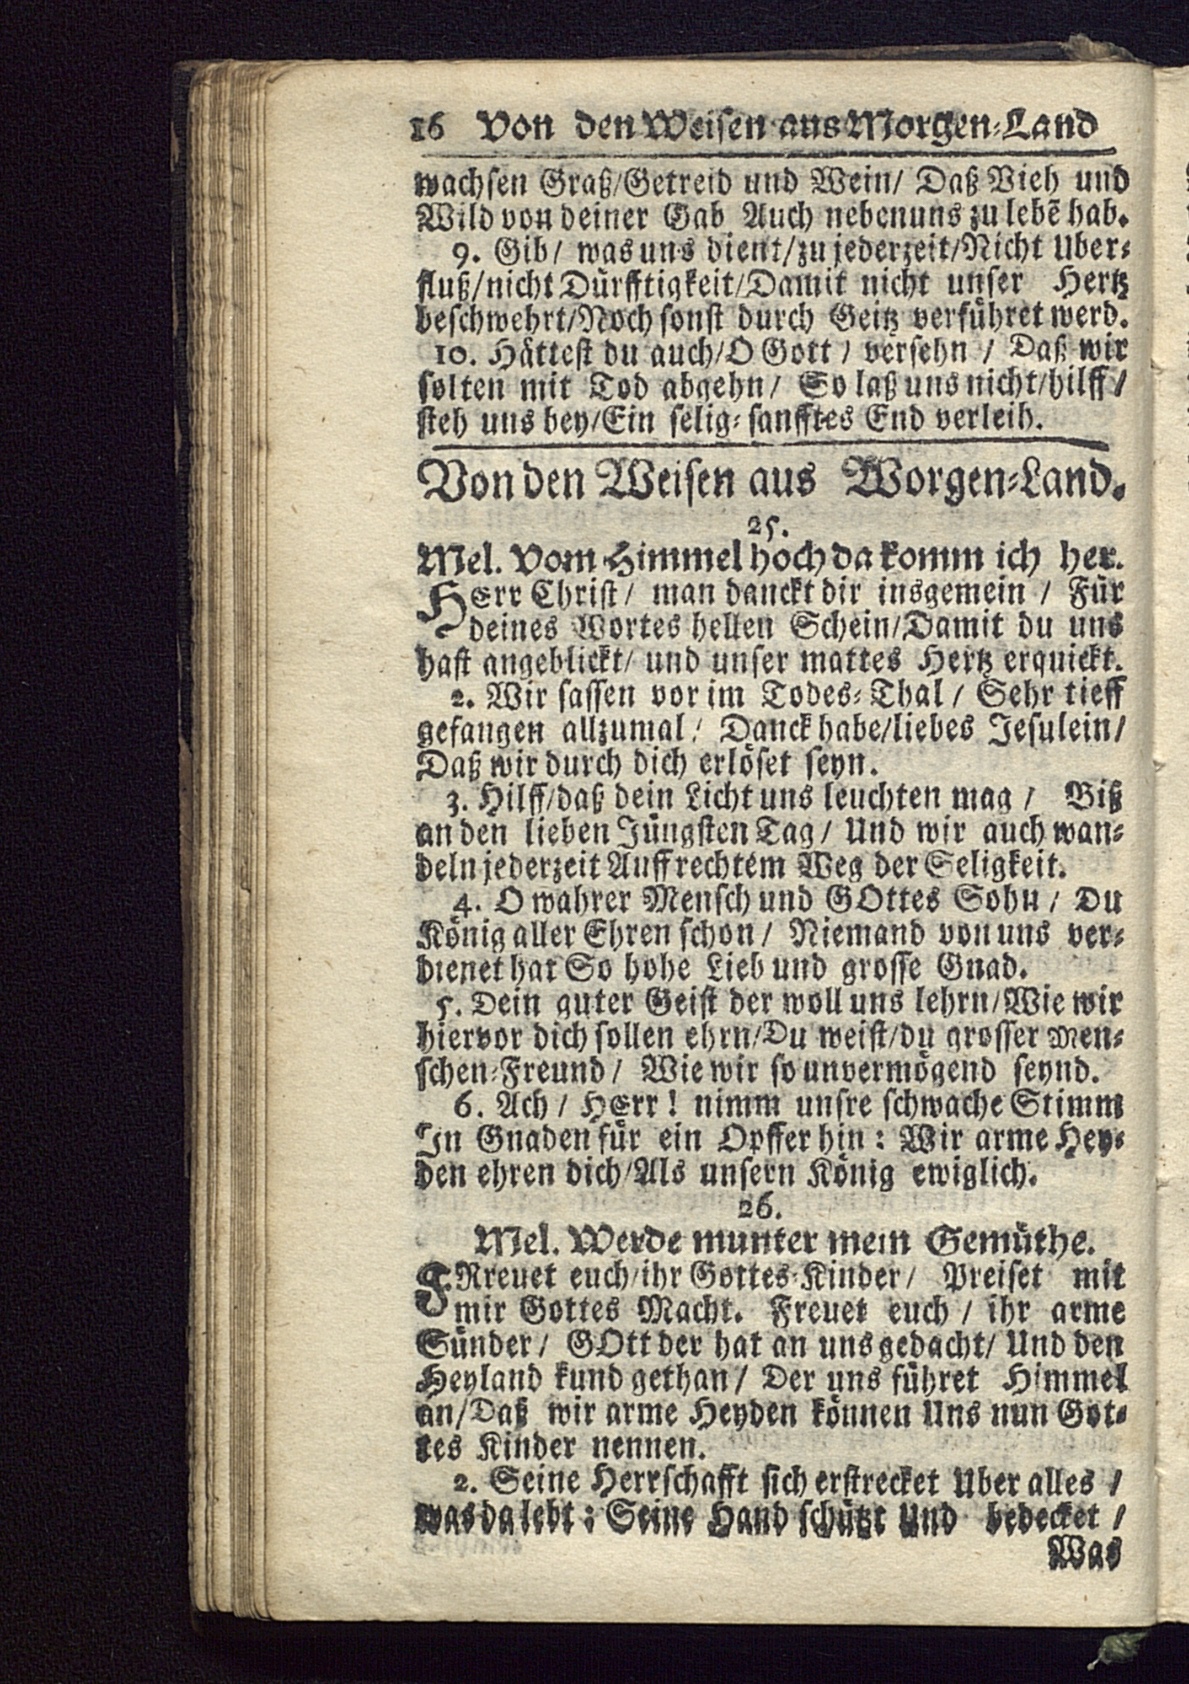 16 Von den Weisen aus Morgen-Land
wachsen Graß/Getreid und Wein/ Daß Vieh und
Wild von deiner Gab Auch neben uns zu lebẽ hab.
9. Gib/ was uns dient/zu jederzeit/Nicht Uber-
fluß/nicht Dürfftigkeit/Damit nicht unser Hertz
beschwehrt/Noch sonst durch Geitz verführet werd.
10. Hättest du auch/O Gott / versehn / Daß wir
solten mit Tod abgehn/ So laß uns nicht/hilff/
steh uns bey/Ein selig-sanfftes End verleih.
Von den Weisen aus Worgen-Land.
25.
Mel. Vom Himmel hoch da komm ich her.
HErr Christ/ man danckt dir insgemein / Für
deines Wortes hellen Schein/Damit du uns
hast angeblickt/ und unser mattes Hertz erquickt.
2. Wir sassen vor im Todes-Thal / Sehr tieff
gefangen allzumal/ Danck habe/liebes Jesulein/
Daß wir durch dich erlöset seyn.
3. Hilff/daß dein Licht uns leuchten mag / Biß
an den lieben Jüngsten Tag/ Und wir auch wan-
deln jederzeit Auff rechtem Weg der Seligkeit.
4. O wahrer Mensch und GOttes Sohn / Du
König aller Ehren schon/ Niemand von uns ver-
dienet hat So hohe Lieb und grosse Gnad.
5. Dein guter Geist der woll uns lehrn/Wie wir
hiervor dich sollen ehrn/Du weist/du grosser Men-
schen-Freund/ Wie wir so unvermögend seynd.
6. Ach / HErr! nimm unsre schwache Stimm
In Gnaden für ein Opffer hin: Wir arme Hey-
den ehren dich/Als unsern König ewiglich.
26.
Mel. Werde munter mein Gemüthe.
FRreuet euch/ihr Gottes-Kinder/ Preiset mit
mir Gottes Macht. Freuet euch / ihr arme
Sünder/ GOtt der hat an uns gedacht/ Und den
Heyland kund gethan/ Der uns führet Himmel
an/Daß wir arme Heyden können Uns nun Got-
tes Kinder nennen.
2. Seine Herrschafft sich erstrecket Uber alles /
was da lebt: Seine Hand schützt Und bedecket /
Was